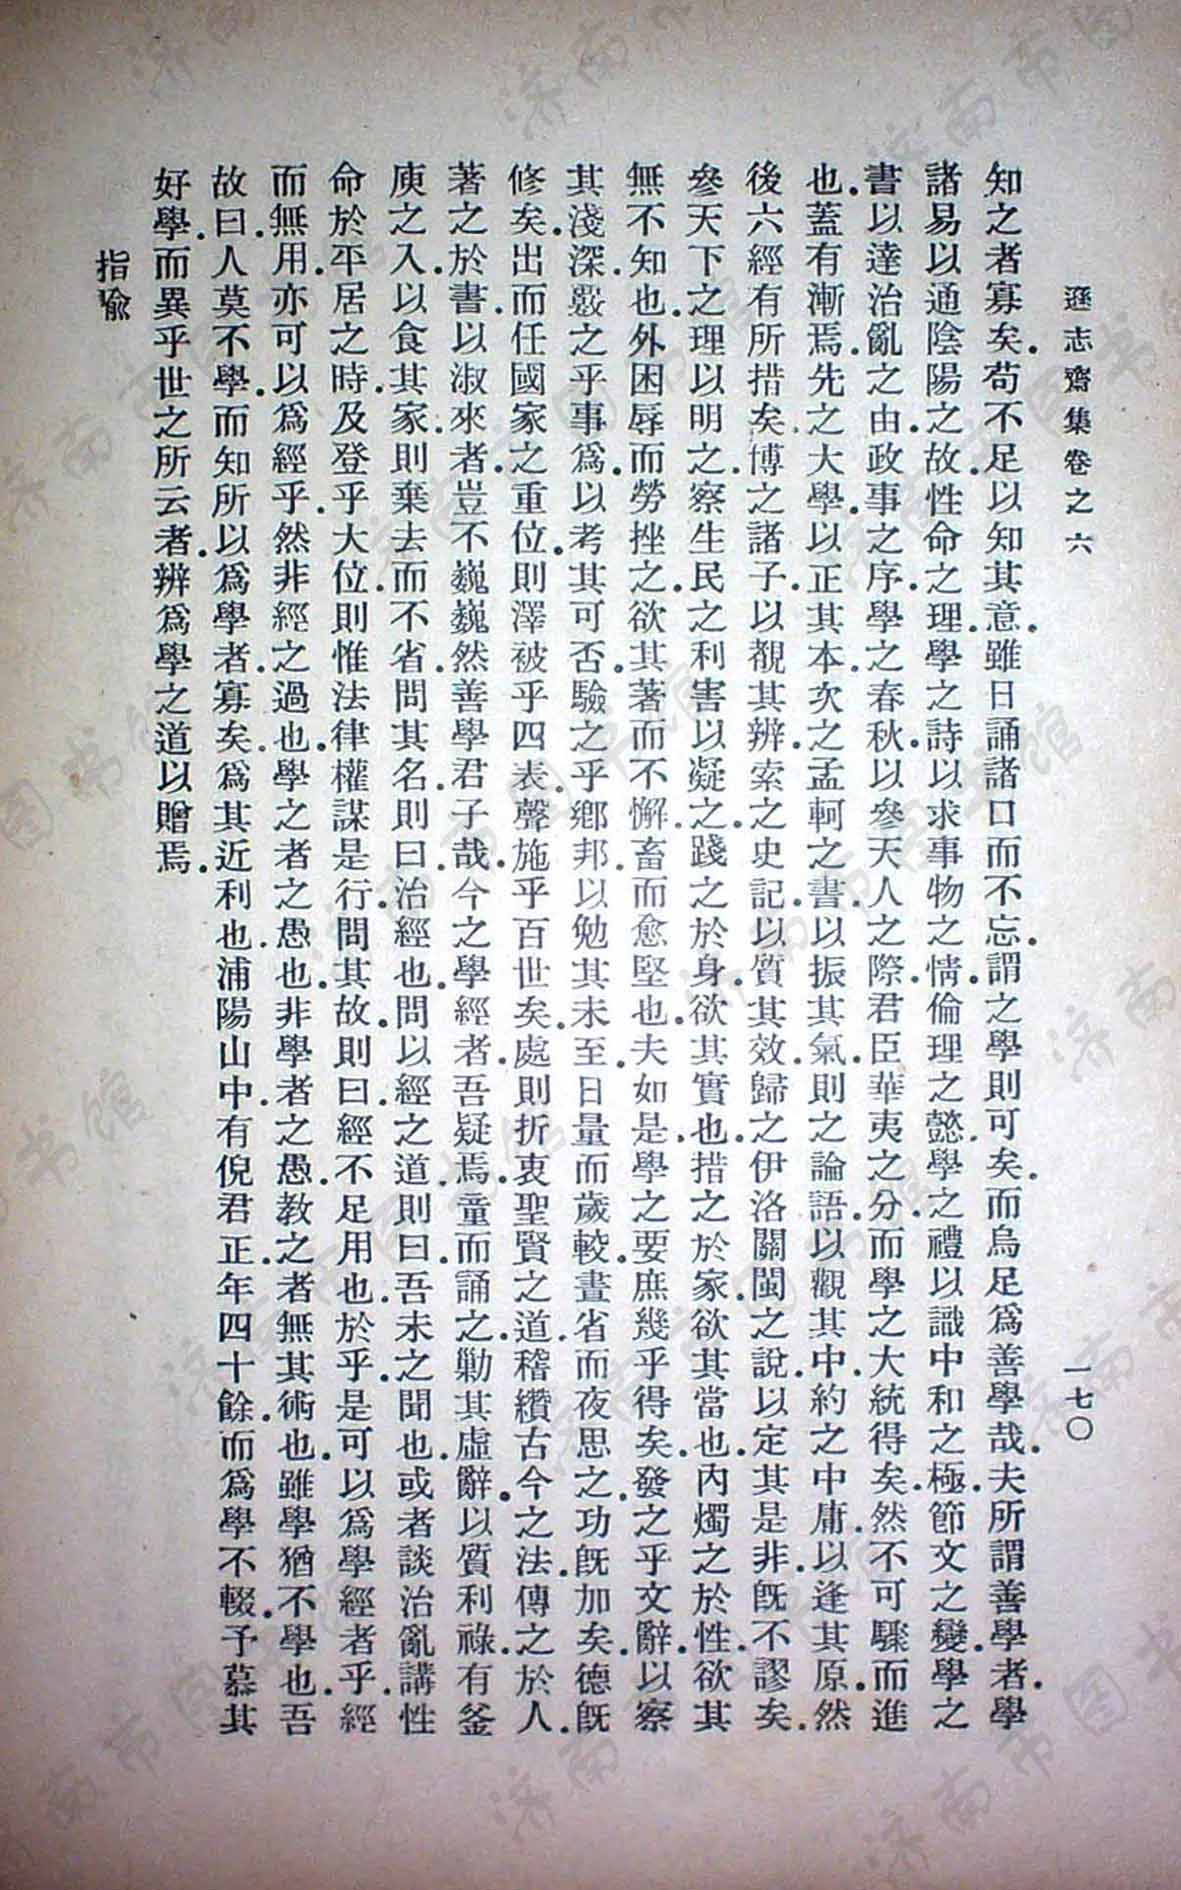 遜志齋集卷之六
一七〇
知之者寡矣.苟不足以知其意.雖日誦諸口而不忘.謂之學則可矣.而烏足爲善學哉.夫所謂善學者.學
諸易以通陰陽之故.性命之理.學之詩以求事物之情.倫理之懿.學之禮以識中和之極.節文之變.學之
書以達治亂之由.政事之序.學之春秋.以參天人之際.君臣華夷之分.而學之大統得矣.然不可驟而進
也.蓋有漸焉.先之大學.以正其本.次之孟軻之書.以振其氣.則之論語.以觀其中.約之中庸.以逢其原.然
後六經有所措矣.博之諸子.以覩其辨.索之史記.以質其效.歸之伊洛關閩之說.以定其是非.旣不謬矣.
參天下之理以明之.察生民之利害以凝之.踐之於身.欲其實也.措之於家.欲其當也.內燭之於性.欲其
無不知也.外困辱而勞挫之.欲其著而不懈.畜而愈堅也.夫如是.學之要庶幾乎得矣.發之乎文辭.以察
其淺深.覈之乎事爲.以考其可否.驗之乎鄉邦.以勉其未至.日量而歲較.晝省而夜思之.功旣加矣.德旣
修矣.出而任國家之重位.則澤被乎四表.聲施乎百世矣.處則折衷聖賢之道.稽纘古今之法.傳之於人.
著之於書.以淑來者.豈不巍巍然善學君子哉.今之學經者.吾疑焉.童而誦之.勦其虛辭.以質利祿.有釜
庾之入.以食其家.則棄去而不省.問其名.則曰.治經也.問以經之道.則曰.吾未之聞也.或者談治亂.講性
命於平居之時.及登乎大位.則惟法律權謀是行.問其故.則曰.經不足用也.於乎.是可以爲學經者乎.經
而無用.亦可以爲經乎.然非經之過也.學之者之愚也.非學者之愚.教之者無其術也.雖學猶不學也.吾
故曰.人莫不學.而知所以爲學者寡矣.爲其近利也.浦陽山中.有倪君正.年四十餘.而爲學不輟.予慕其
好學.而異乎世之所云者.辨爲學之道以贈焉.
指喩